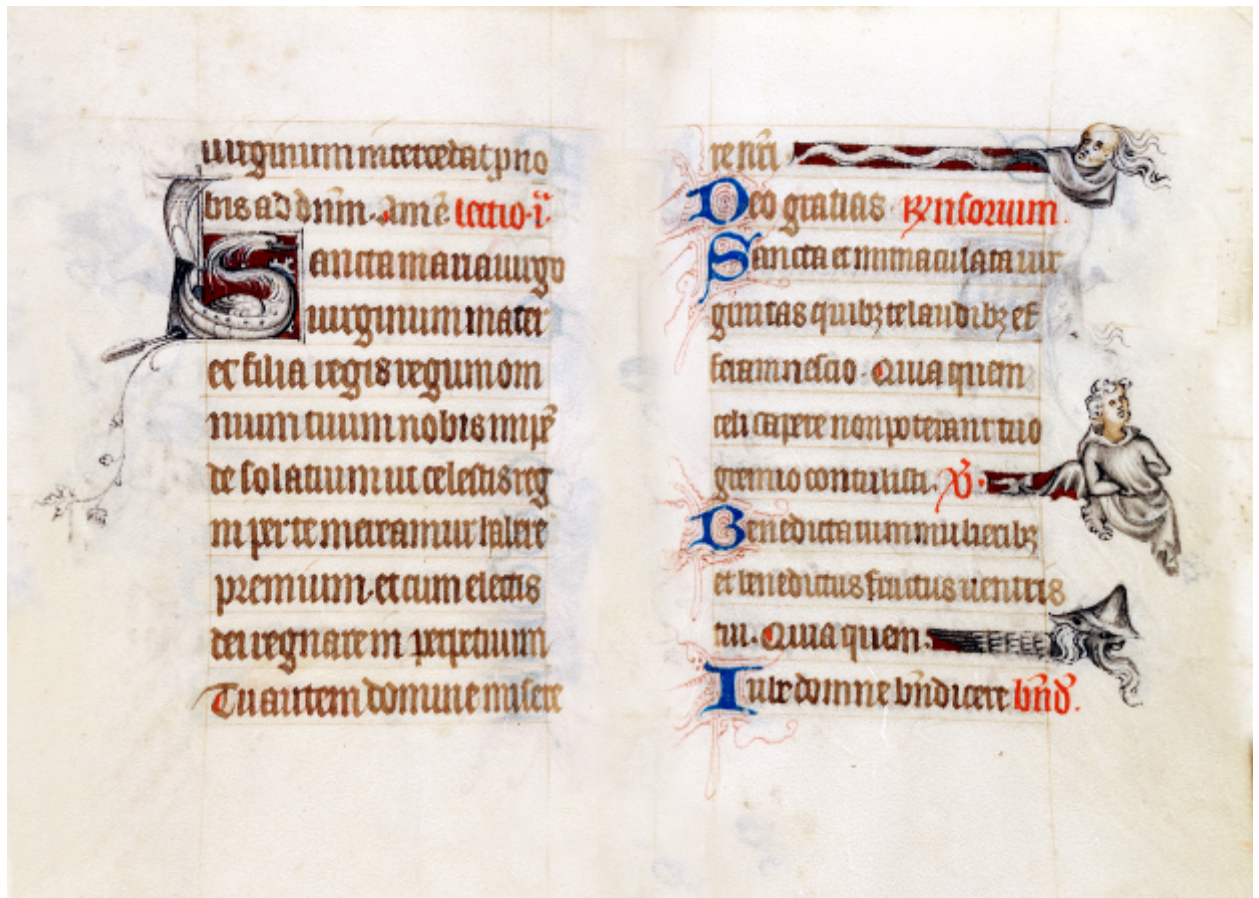 uirginum intercedat pno
bis ad dn̄m. amē lectio .i.
Sancta maria uirgo
uirginum mater
et filia regis regum om
nium tuum nobis impē
de solatium ut celestis reg
ni per te mereamur habere
premium. et cum electis
dei regnare in perpetuum
Tu autem domine misere
re nr̄i
Deo gratias.
Sancta et inmaculata uir
ginitas quibꝫ te laudibꝫ ef
feram nescio. Quia quem
celi capere non poterant tuo
gremio contulisti. ꝟ.
Benedicta tu in mulieribꝫ
et benedictus fructus uentris
tui. Quia quem.
Iube domne bn̄dicere bn̄d̄.